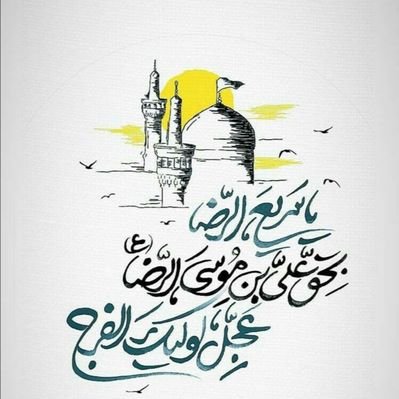 یا سَریعَ الرّضا
بِحَقِّ عَلیِّ بنِ مُوسَی الرِّضا (ع)
عَجِّل لِوَلیِّکَ الفَرَج